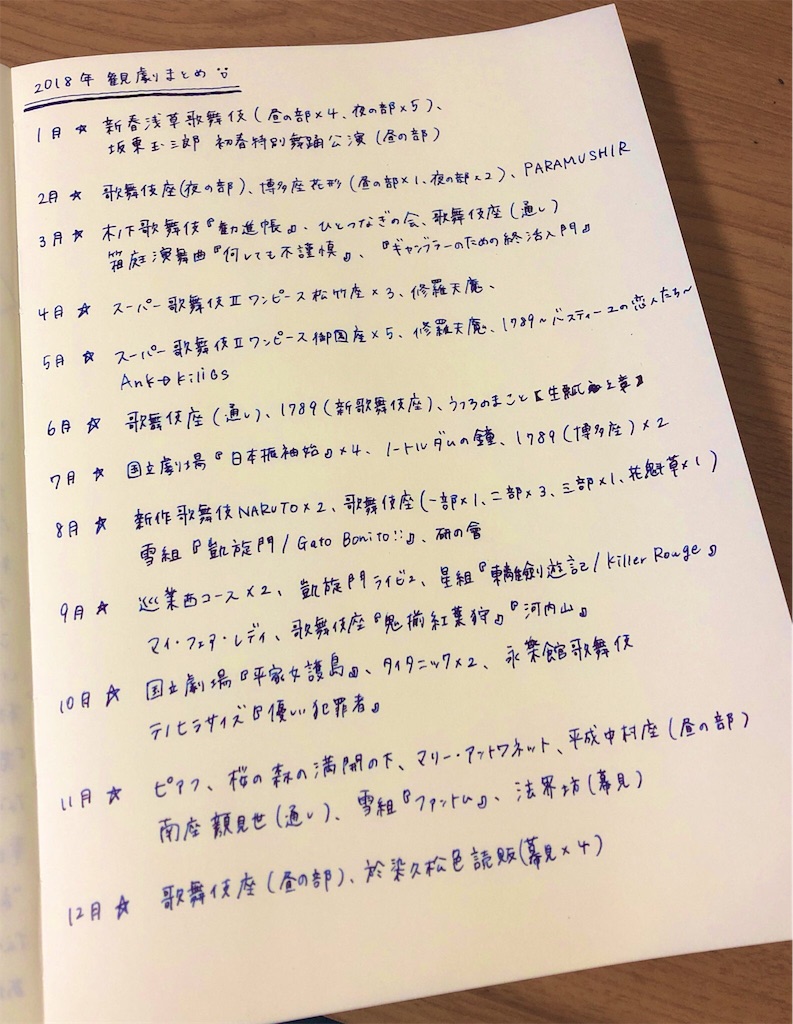 2018年 観劇まとめ
1月 ☆ 新春浅草歌舞伎(昼の部×4、夜の部×5)、
坂東玉三郎 初春特別舞踊公演(昼の部)
2月 ☆ 歌舞伎座(夜の部)、博多座花形(昼の部×1、夜の部×2)、PARAMUSHIR
3月 ☆ 木ノ下歌舞伎『勧進帳』、ひとつなぎの会、歌舞伎座(通し)
箱庭演舞曲『何しても不謹慎』、『ギャンブラーのための終活入門』
4月 ☆ スーパー歌舞伎Ⅱワンピース松竹座×3、修羅天魔、
5月 ☆ スーパー歌舞伎Ⅱワンピース御園座×5、修羅天魔、1789〜バスティーユの恋人たち〜
6月 ☆ 歌舞伎座(通し)、1789(新歌舞伎座)、うつろのまこと
7月 ☆ 国立劇場『日本振袖始』×4、ノートルダムの鐘、1789(博多座)×2
8月 ☆ 新作歌舞伎NARUTO×2、歌舞伎座(一部×1、二部×3、三部×1、花魁草×1)
雪組『凱旋門/Gato Bonito!!』、研の會
9月 ☆ 巡業西コース×2、凱旋門ライビュ、星組『霧離劍遊記/Killer Rouge』
マイ・フェア・レディ、歌舞伎座『鬼揃紅葉狩』『河内山』
10月 ☆ 国立劇場『平家女護島』、タイタニック×2、永楽館歌舞伎
テノヒラサイズ『優しい犯罪者』
11月 ☆ ピアフ、桜の森の満開の下、マリー・アントワネット、平成中村座(昼の部)
南座顔見世(通し)、雪組『ファントム』、法界坊(幕見)
12月 ☆ 歌舞伎座(昼の部)、於染久松色読販(幕見×4)